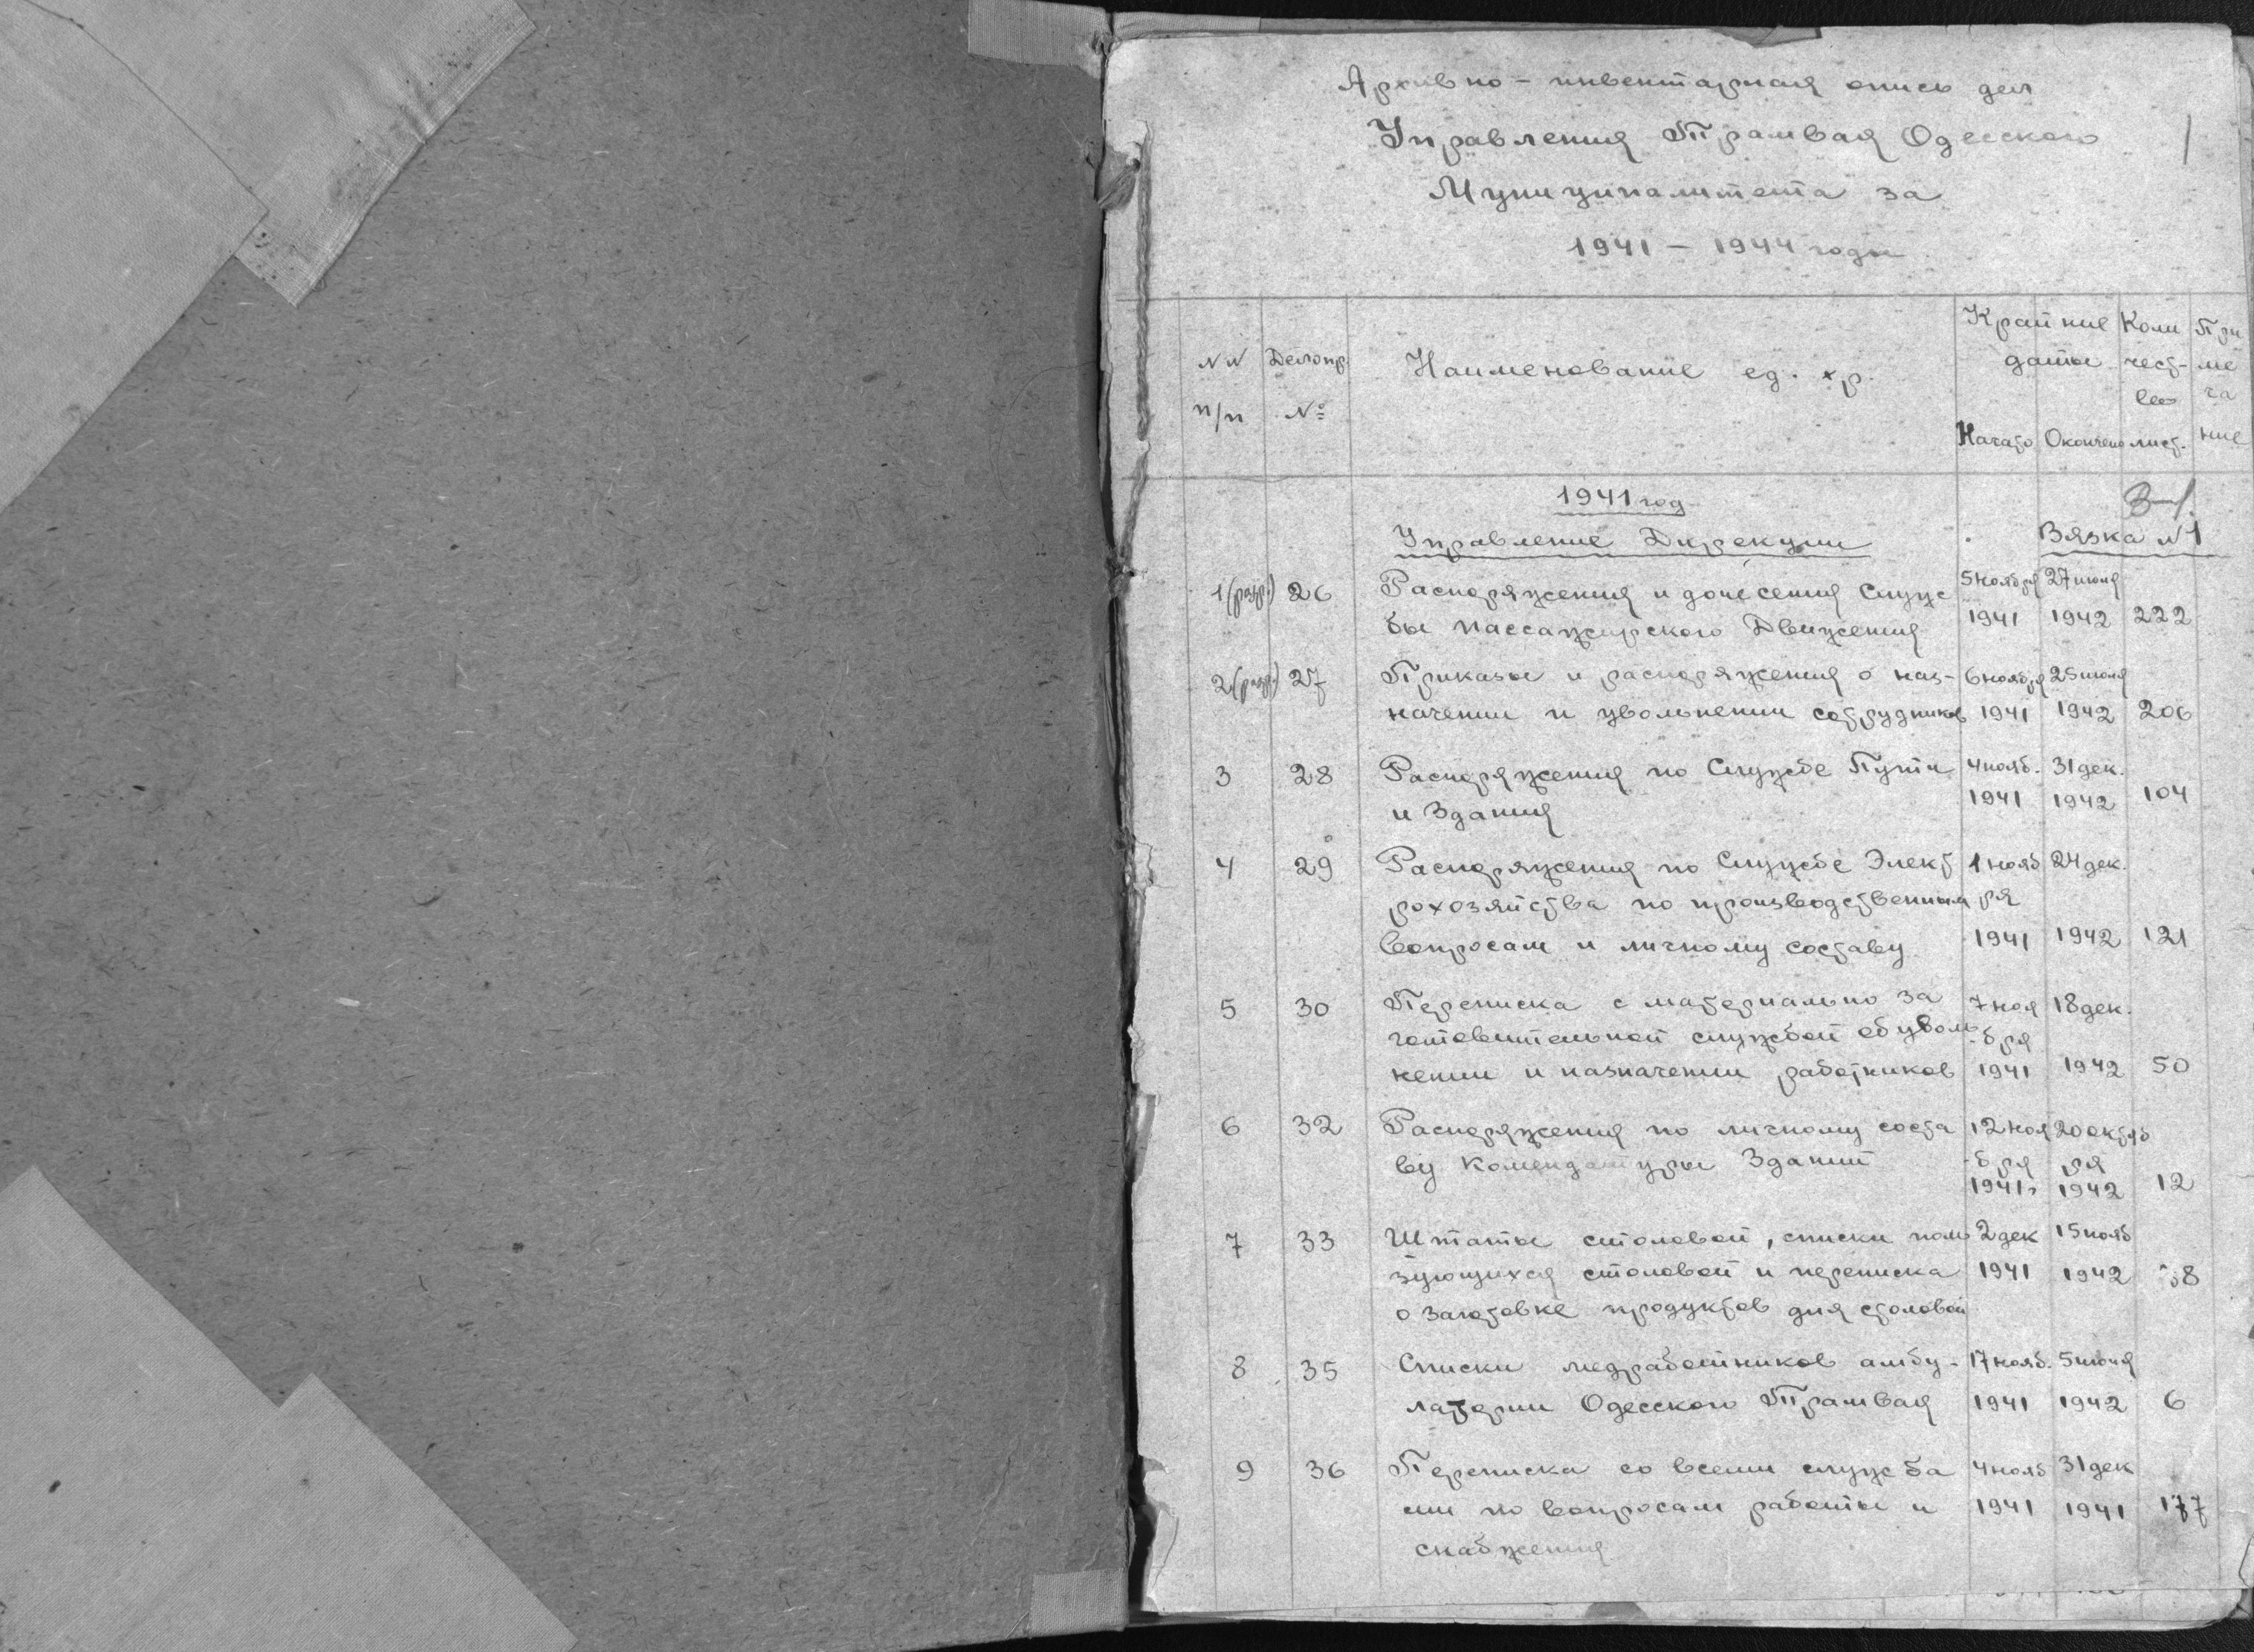 Архивно-инвентарная опись дел
Управления Трамвая Одесского
Муниципалитета за
1941 – 1944 годы
1
NN п/п Делопр. № Наименование ед. хр. Крайние даты Начато Окончено Количество лист. Примечание
1941 год
З-1
Управление Дирекции Вязка N1
1 (разр.) 26 Распоряжения и донесения Служ 5 ноября 27 июня
бы пассажирского Движения 1941 1942 222
2 (разр.) 27 Приказы и распоряжения о наз- 6 ноября 25 июля
начении и увольнении сотрудников 1941 1942 206
3 28 Распоряжения по Службе Пути 4 нояб. 31 дек.
и Здания 1941 1942 104
4 29 Распоряжения по Службе Элект 1 нояб 24 дек.
рохозяйства по производственным ря
вопросам и личному составу 1941 1942 121
5 30 Переписка с материально за 7 ноя 18 дек.
готовительной службой об уволь бря
нении и назначении работников 1941 1942 50
6 32 Распоряжения по личному соста 12 ноя 20 октяб
ву Комендатуры Зданий бря ря
1941 1942 12
7 33 Штаты столовой, списки поль 2 дек 15 нояб
зующихся столовой и переписка 1941 1942
о заготовке продуктов для столовой
8 35 Списки медработников амбу- 17 нояб. 5 июня
латории Одесского Трамвая 1941 1942 6
9 36 Переписка со всеми служба 4 нояб 31 дек
ми по вопросам работы и 1941 1941 177
снабжения